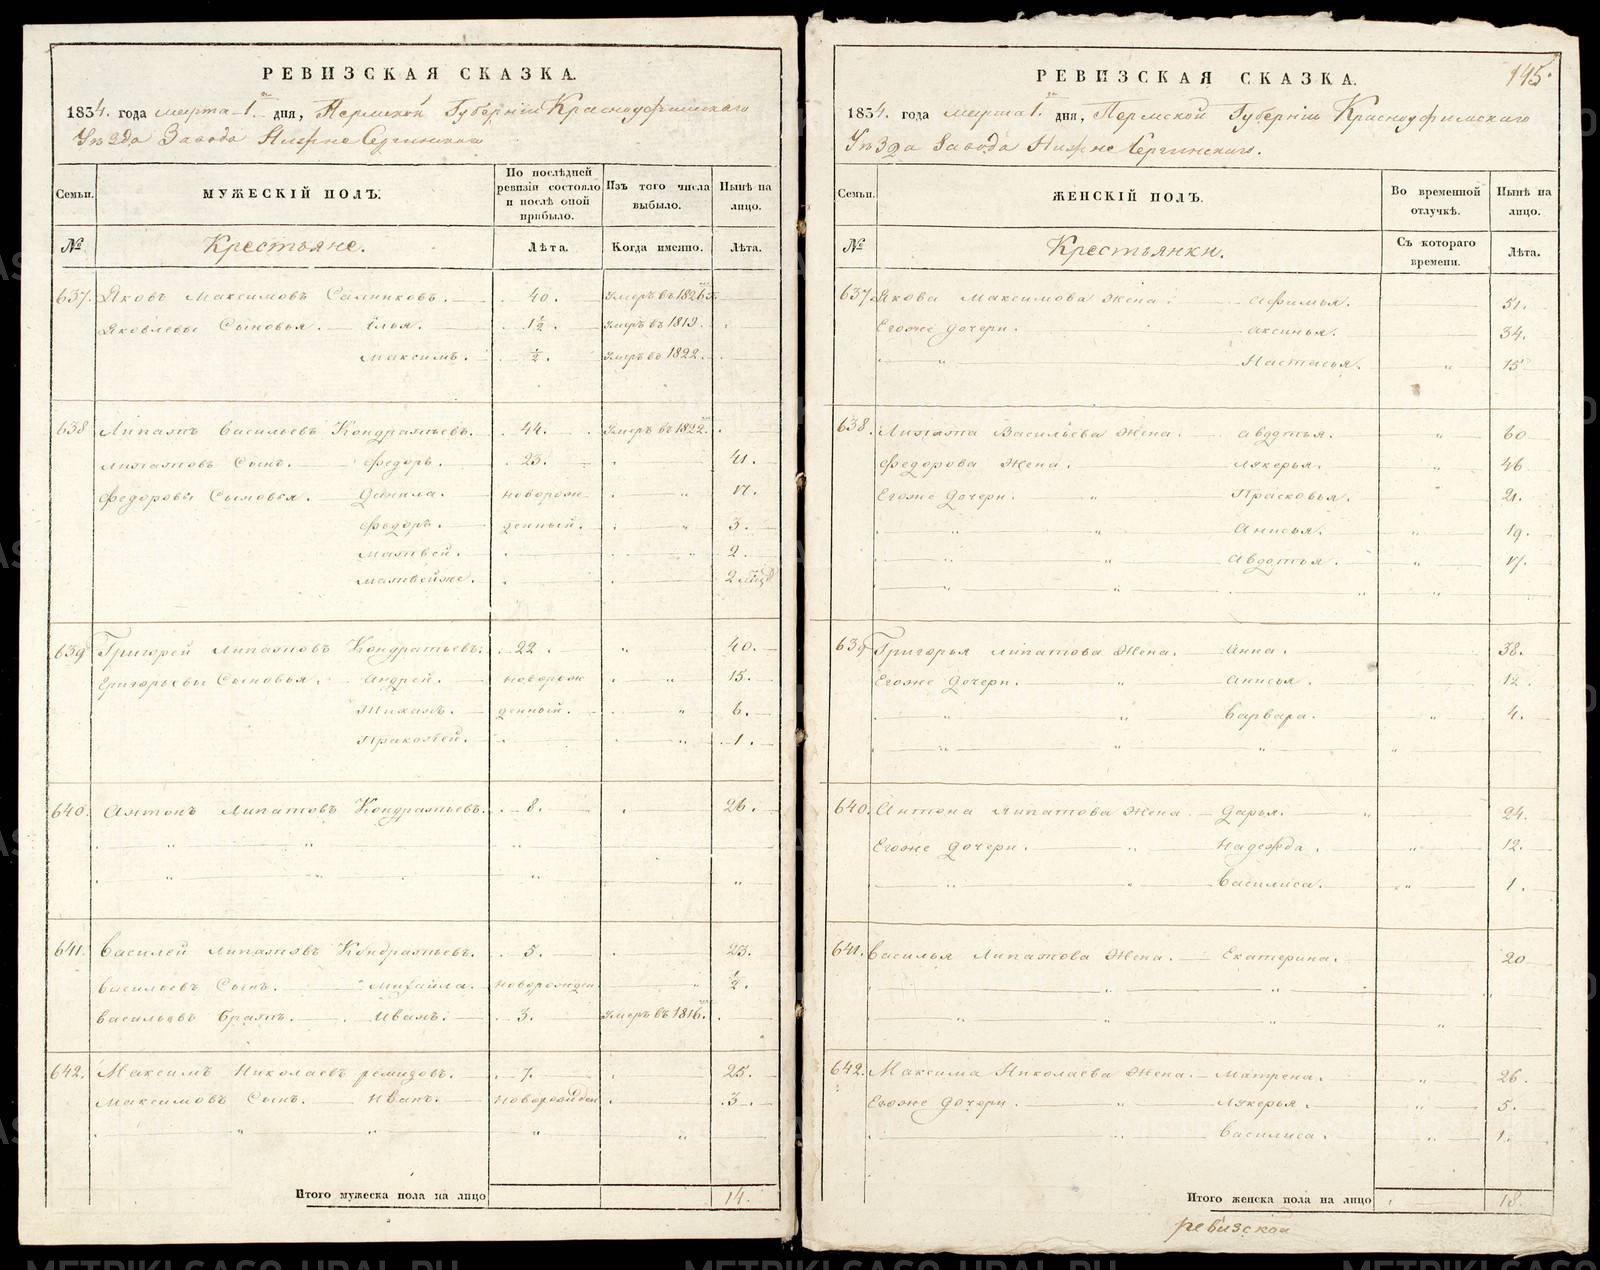 РЕВИЗСКАЯ СКАЗКА.
1834. года марта 1го дня, Пермской Губернiи Красноуфимскаго
Уѣзда Завода Нижне Сергинскаго
Семьи. МУЖЕСКІЙ ПОЛЪ. По послѣдней ревизіи состояло и послѣ оной прибыло. Изъ того числа выбыло. Нынѣ на лицо.
№ Крестьяне. Лѣта. Когда именно. Лѣта.
637. Яковъ Максимовъ Салниковъ. 40. умеръ въ 1826мъ
Яковлевы Сыновья. Илья. 1½ умеръ въ 1819.
Максимъ. ½. умеръ въ 1822.
638 Липатъ Васильевъ Кондратьевъ. 44. умеръ въ 1822.
Липатовъ Сынъ. Федоръ. 23. 41.
Федоровы Сыновья. Данила. новорож 17.
Федоръ. денный. 3.
Матвей. 2.
Матвейже. 2
639 Григорей Липатовъ Кондратьевъ. 22. 40.
Григорьевы Сыновья. Андрей. новорож 15.
Тиханъ. денный. 6.
Пракопей. 1.
640. Антонъ Липатовъ Кондратьевъ. 8. 26.
641. Василей Липатовъ Кондратьевъ. 5. 23.
Васильевъ Сынъ. Михайла. новорожден ½.
Васильевъ братъ. Иванъ. 3. умеръ въ 1816.
642. Максимъ Николаевъ Ремизовъ. 7. 25.
Максимовъ Сынъ. Иванъ. новорожден 3.
Итого мужеска пола на лицо 14.
145.
РЕВИЗСКАЯ СКАЗКА.
1834. года марта 1го дня, Пермской Губернiи Красноуфимскаго
Уѣзда Завода Нижне Сергинскаго.
Семьи. ЖЕНСКІЙ ПОЛЪ. Во временной отлучкѣ. Нынѣ на лицо.
№ Крестьянки. Съ котораго времени. Лѣта.
637 Якова Максимова Жена. Афимья. 51.
Егоже дочери. Аксинья. 34.
" Настасья. " 15
638. Липата Васильева Жена. Авдотья. " 60
Федорова Жена. Лукерья. " 46
Егоже дочери. " Прасковья. " 21.
" " Анисья. " 19.
" " Авдотья. " 17.
639 Григорья Липатова Жена. Анна. 38.
Егоже дочери. " Анисья. 12
" " Варвара. " 4.
640. Антона Липатова Жена. Дарья. " 24.
Егоже дочери. " Надежда. " 12.
" " Василиса. " 1.
641. Василья Липатова Жена. Екатерина. 20
642. Максима Николаева Жена. Матрена. " 26.
Егоже дочери. " Лукерья. " 5.
" Василиса. " 1.
Итого женска пола на лицо 18.
ревизской
METRIKI.GASO-URAL.RU METRIKI.GASO-URAL.RU